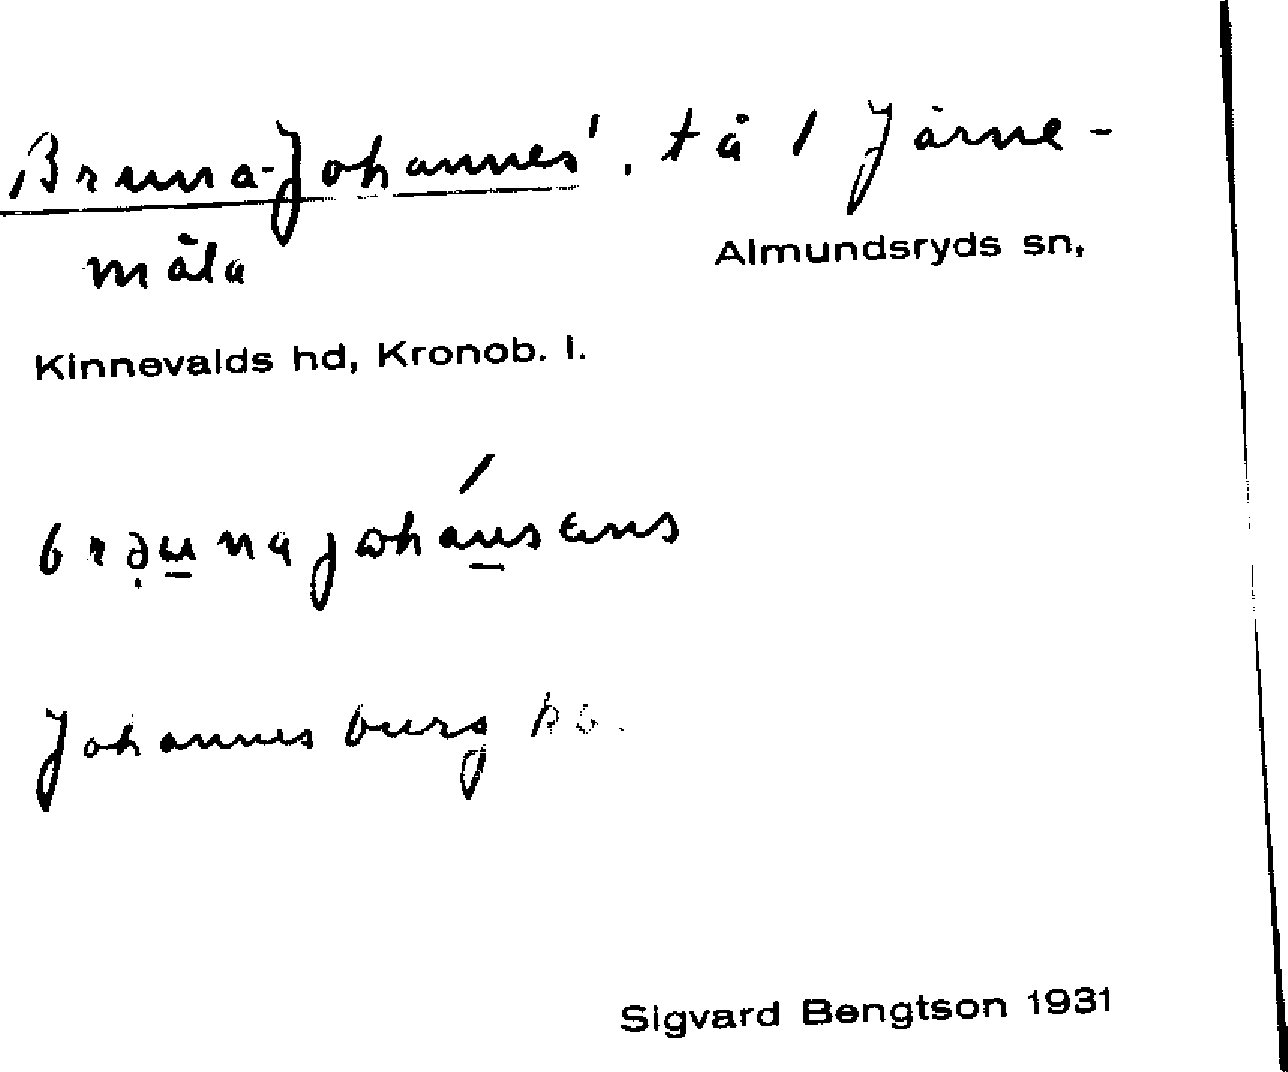 Bruna-Johannes', tå 1 Järne-
måla
Almundsryds sn,
Kinnevalds hd, Kronob. l.
Johannesburg kb.
Sigvard Bengtson 1931